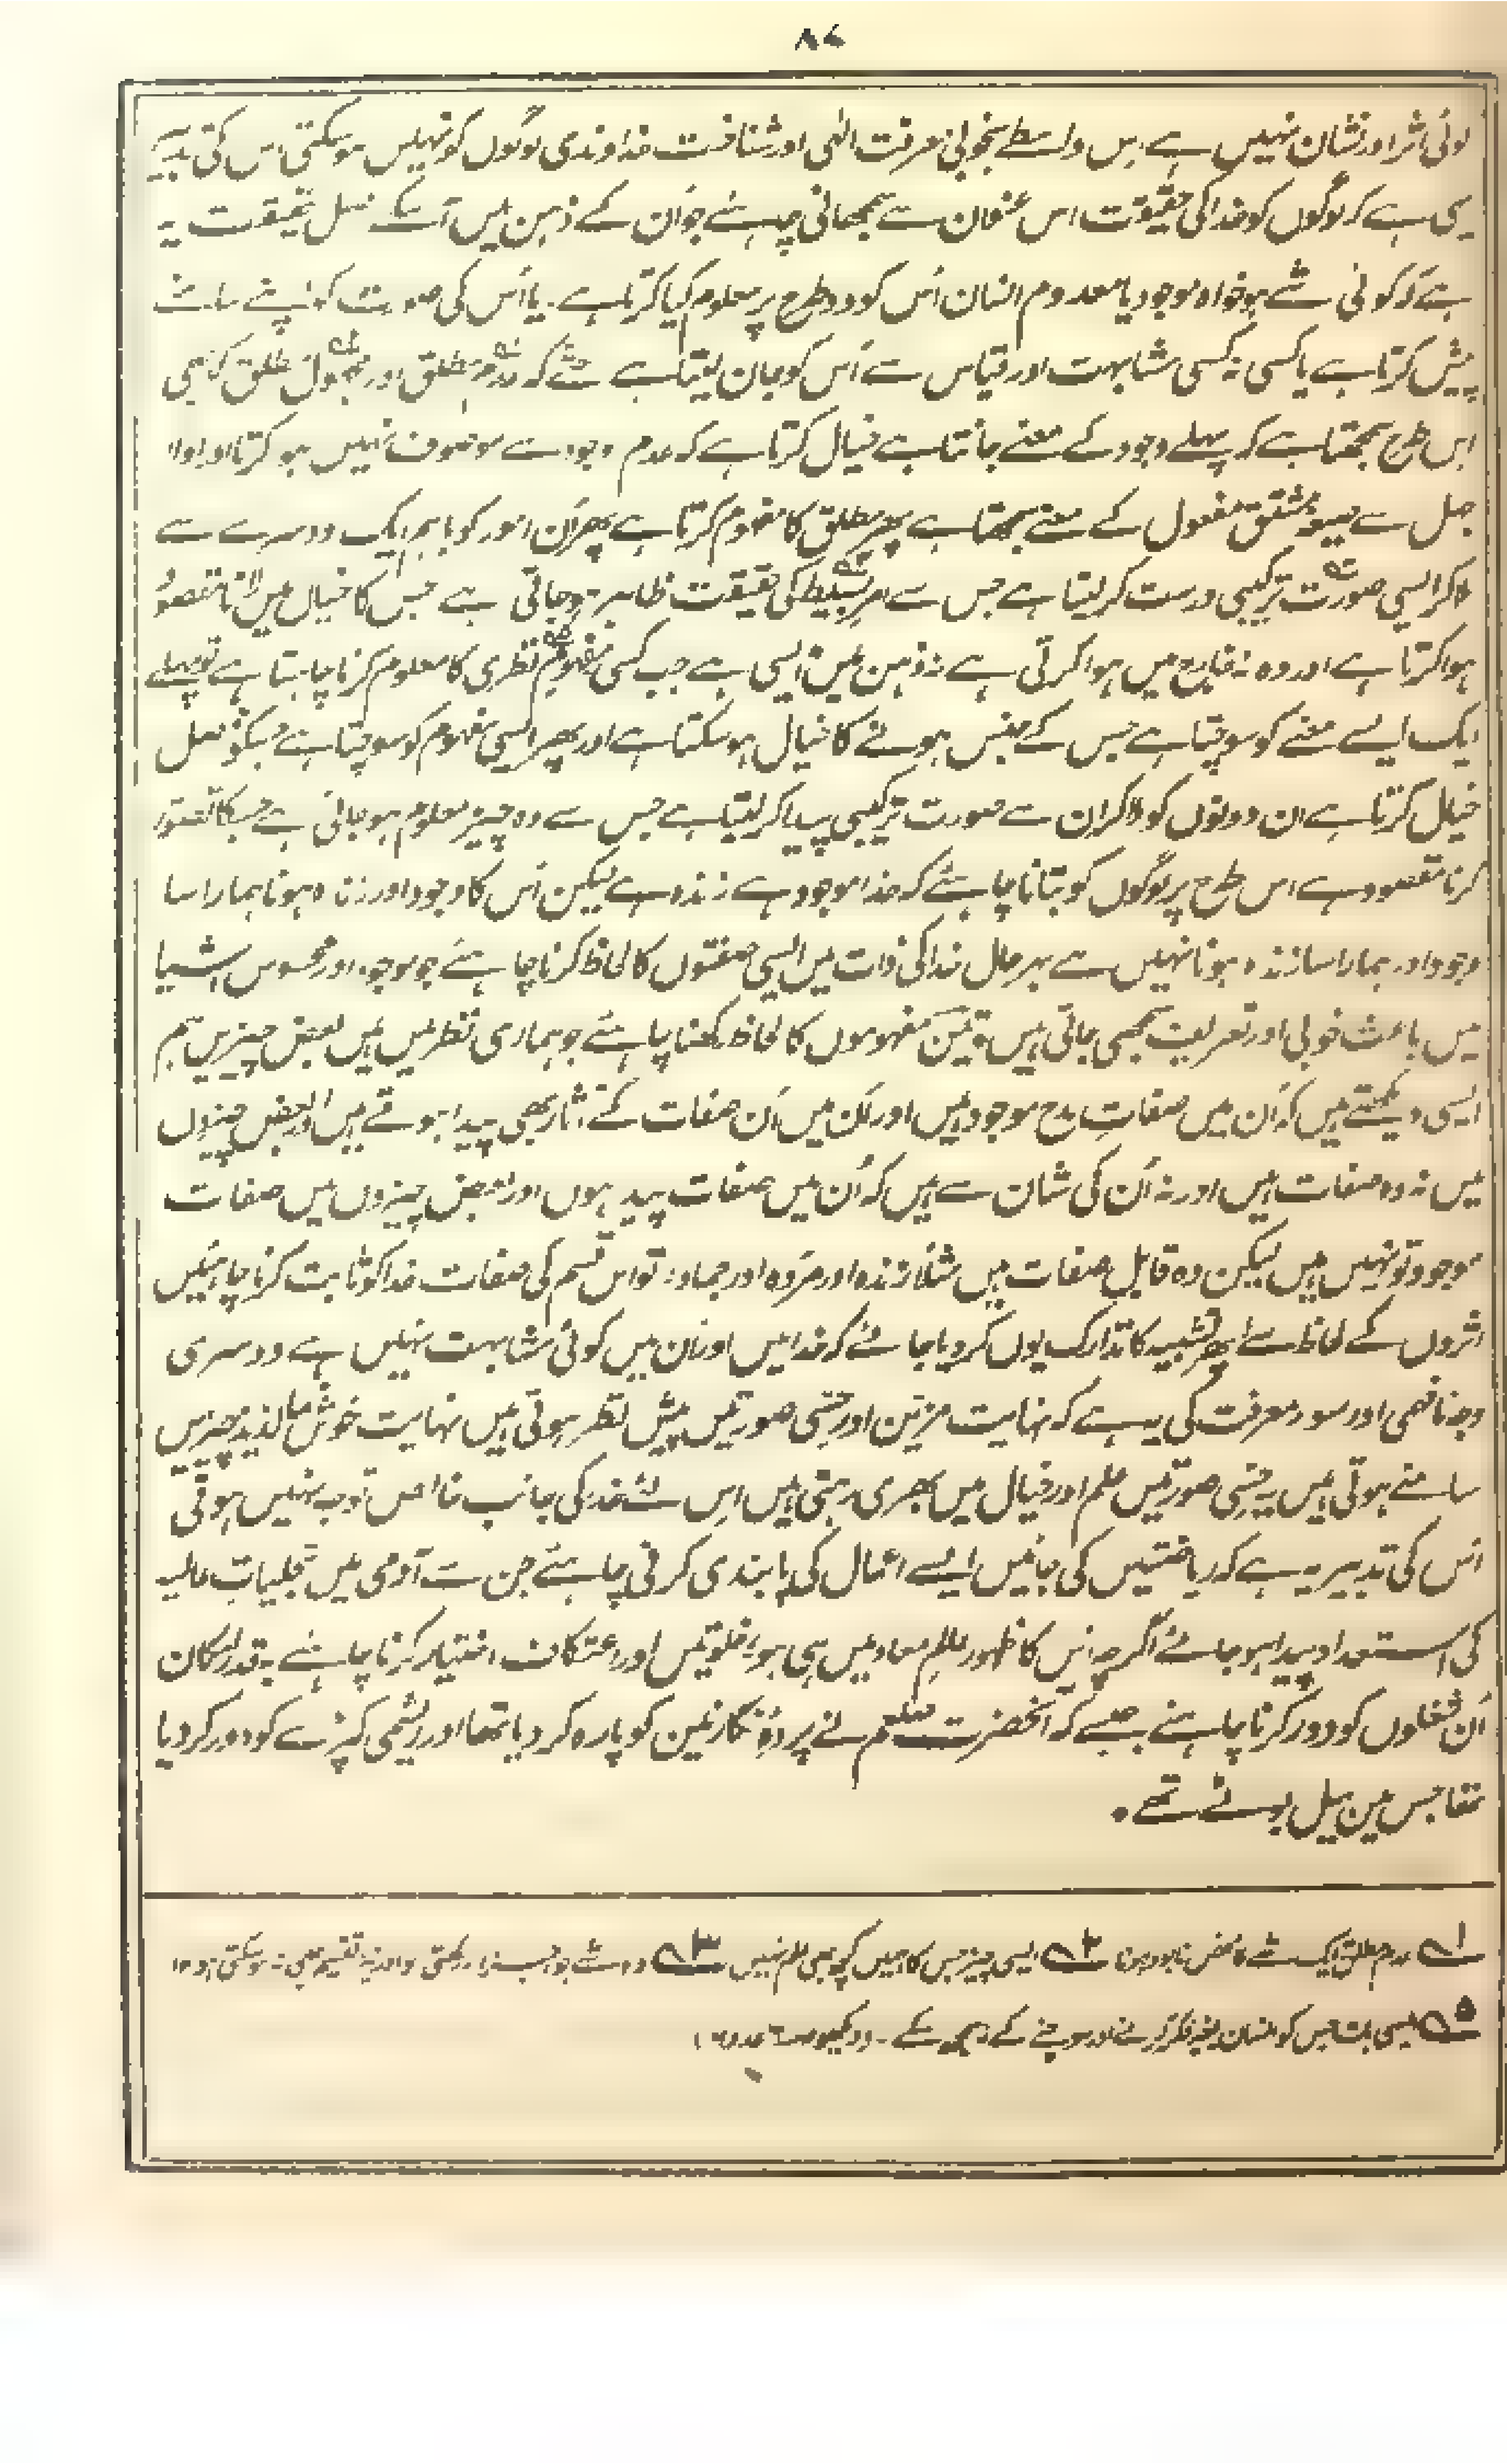 ۸۷
کوئی اثر اور نشان نہیں ہے اس واسطے بخوبی معرفت الٰہی اور شناخت خداوندی لوگوں کو نہیں ہو سکتی اس کی تدبیر
یہی ہے کہ لوگوں کو خدا کی حقیقت اس عنوان سے سمجھانی چاہئے جو ان کے ذہن میں آ سکے اصل حقیقت یہ
ہے کہ کوئی شے ہو خواہ موجود یا معدوم انسان اُس کو دو طرح پر معلوم کیا کرتا ہے۔ یا اُس کی صورت کو اپنے سامنے
پیش کرتا ہے یا کسی نہ کسی مشابہت اور قیاس سے اُس کو جان لیتا ہے حتّٰے کہ عدم مطلق اور مجہول مطلق کو بھی
اس طرح سمجھتا ہے کہ پہلے وجود کے معنے جانتا ہے خیال کرتا ہے کہ عدم وجود سے موصوف نہیں ہو کرتا اور اولا
جہل سے صیغہ مشتق مفعول کے معنے سمجھتا ہے پھر مطلق کا مفہوم کرتا ہے پھر اُن امور کو باہم ایک دوسرے سے
ملا کر ایسی صورت ترکیبی درست کر لیتا ہے جس سے امر بسیط کی حقیقت ظاہر ہو جاتی ہے جس کا خیال میں لانا مقصود
ہوا کرتا ہے اور وہ نہ خارج میں ہوا کرتی ہے نہ ذہن میں ایسی ہے جب کسی مفہوم نظری کا معلوم کرنا چاہتا ہے تو پہلے
ایک ایسے معنے کو سوچتا ہے جس کے جنس ہونے کا خیال ہو سکتا ہے اور پھر ایسی مفہوم کو سوچتا ہے جسکو فصل
خیال کرتا ہے ان دونوں کو ملا کر ان سے صورت ترکیبی پیدا کر لیتا ہے جس سے وہ چیز معلوم ہو جاتی ہے جسکا تصور
کرنا مقصود ہے اس طرح پر لوگوں کو بتانا چاہئے کہ خدا موجود ہے زندہ ہے لیکن اُس کا وجود اور زندہ ہونا ہمارا سا
وجود اور ہمارا سا زندہ ہونا نہیں ہے بہر حال خدا کی ذات میں ایسی صفتوں کا لحاظ کرنا چاہئے جو موجود اور محسوس اشیا
میں باعث خوبی اور تعریف سمجھی جاتی ہیں تین مفہوموں کا لحاظ رکھنا چاہئے جو ہماری نظر میں ہیں بعض چیزیں ہم
ایسی دیکھتے ہیں کہ اُن میں صفات مدح موجود ہیں اور اُن میں اُن صفات کے آثار بھی پیدا ہوتے ہیں اور بعض چیزوں
میں نہ وہ صفات ہیں اور نہ اُن کی شان سے ہیں کہ اُن میں صفات پیدا ہوں اور بعض چیزوں میں صفات
موجود تو نہیں ہیں لیکن وہ قابل صفات ہیں مثلاً زندہ اور مردہ اور جماد۔ تو اس قسم کی صفات خدا کو ثابت کرنا چاہئیں
اثروں کے لحاظ سے پھر تشبیہ کا تدارک یوں کر دیا جائے کہ خدا میں اور اُن میں کوئی مشابہت نہیں ہے دوسری
وجہ نافہمی اور سوء معرفت کی یہ ہے کہ نہایت مزین اور حسّی صورتیں پیش نظر ہوتی ہیں نہایت خوش نما لذیذ چیزیں
سامنے ہوتی ہیں یہ حسّی صورتیں علم اور خیال میں بھری رہتی ہیں اس لئے خدا کی جانب خالص توجہ نہیں ہوتی
اُس کی تدبیر یہ ہے کہ ریاضتیں کی جائیں ایسے اعمال کی پابندی کرنی چاہئے جن سے آدمی میں تجلیات عالیہ
کی استعداد پیدا ہو جائے اگرچہ اُس کا ظہور عالمِ معاد میں ہی ہو، خلوتیں اور اعتکاف اختیار کرنا چاہئے بقدر امکان
اُن شغلوں کو دور کرنا چاہئے جیسے کہ آنحضرت صلعم نے پردۂ نگارین کو پارہ کر دیا تھا اور ریشمی کپڑے کو دور کر دیا
تھا جس میں بیل بوٹے تھے۔
۱ عدم مطلق ایک شے کا محض نابود ہونا ۲ ایسی چیز جس کا ہمیں کچھ بھی علم نہیں ۳ وہ شے جو اجزا نہ رکھتی ہو اور نہ تقسیم بھی نہ ہو سکتی ہو ۱۲
۵ ایسی بات جس کو انسان بغیر فکر کرنے اور سوچنے کے نہ سمجھ سکے۔ (دیکھو